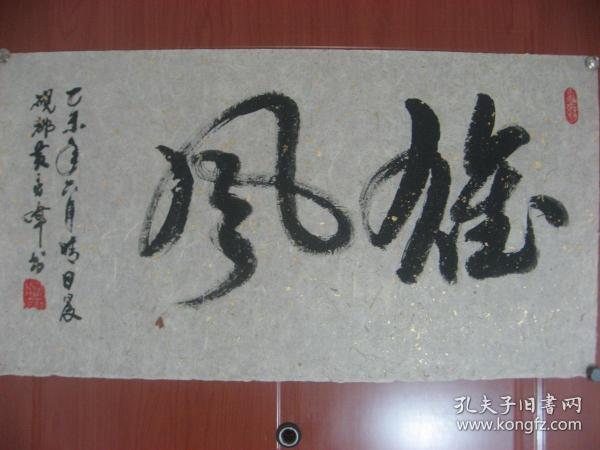 雄風
乙未年六月晴日晨
砚都峰书
孔夫子旧书网
www.kongfz.com